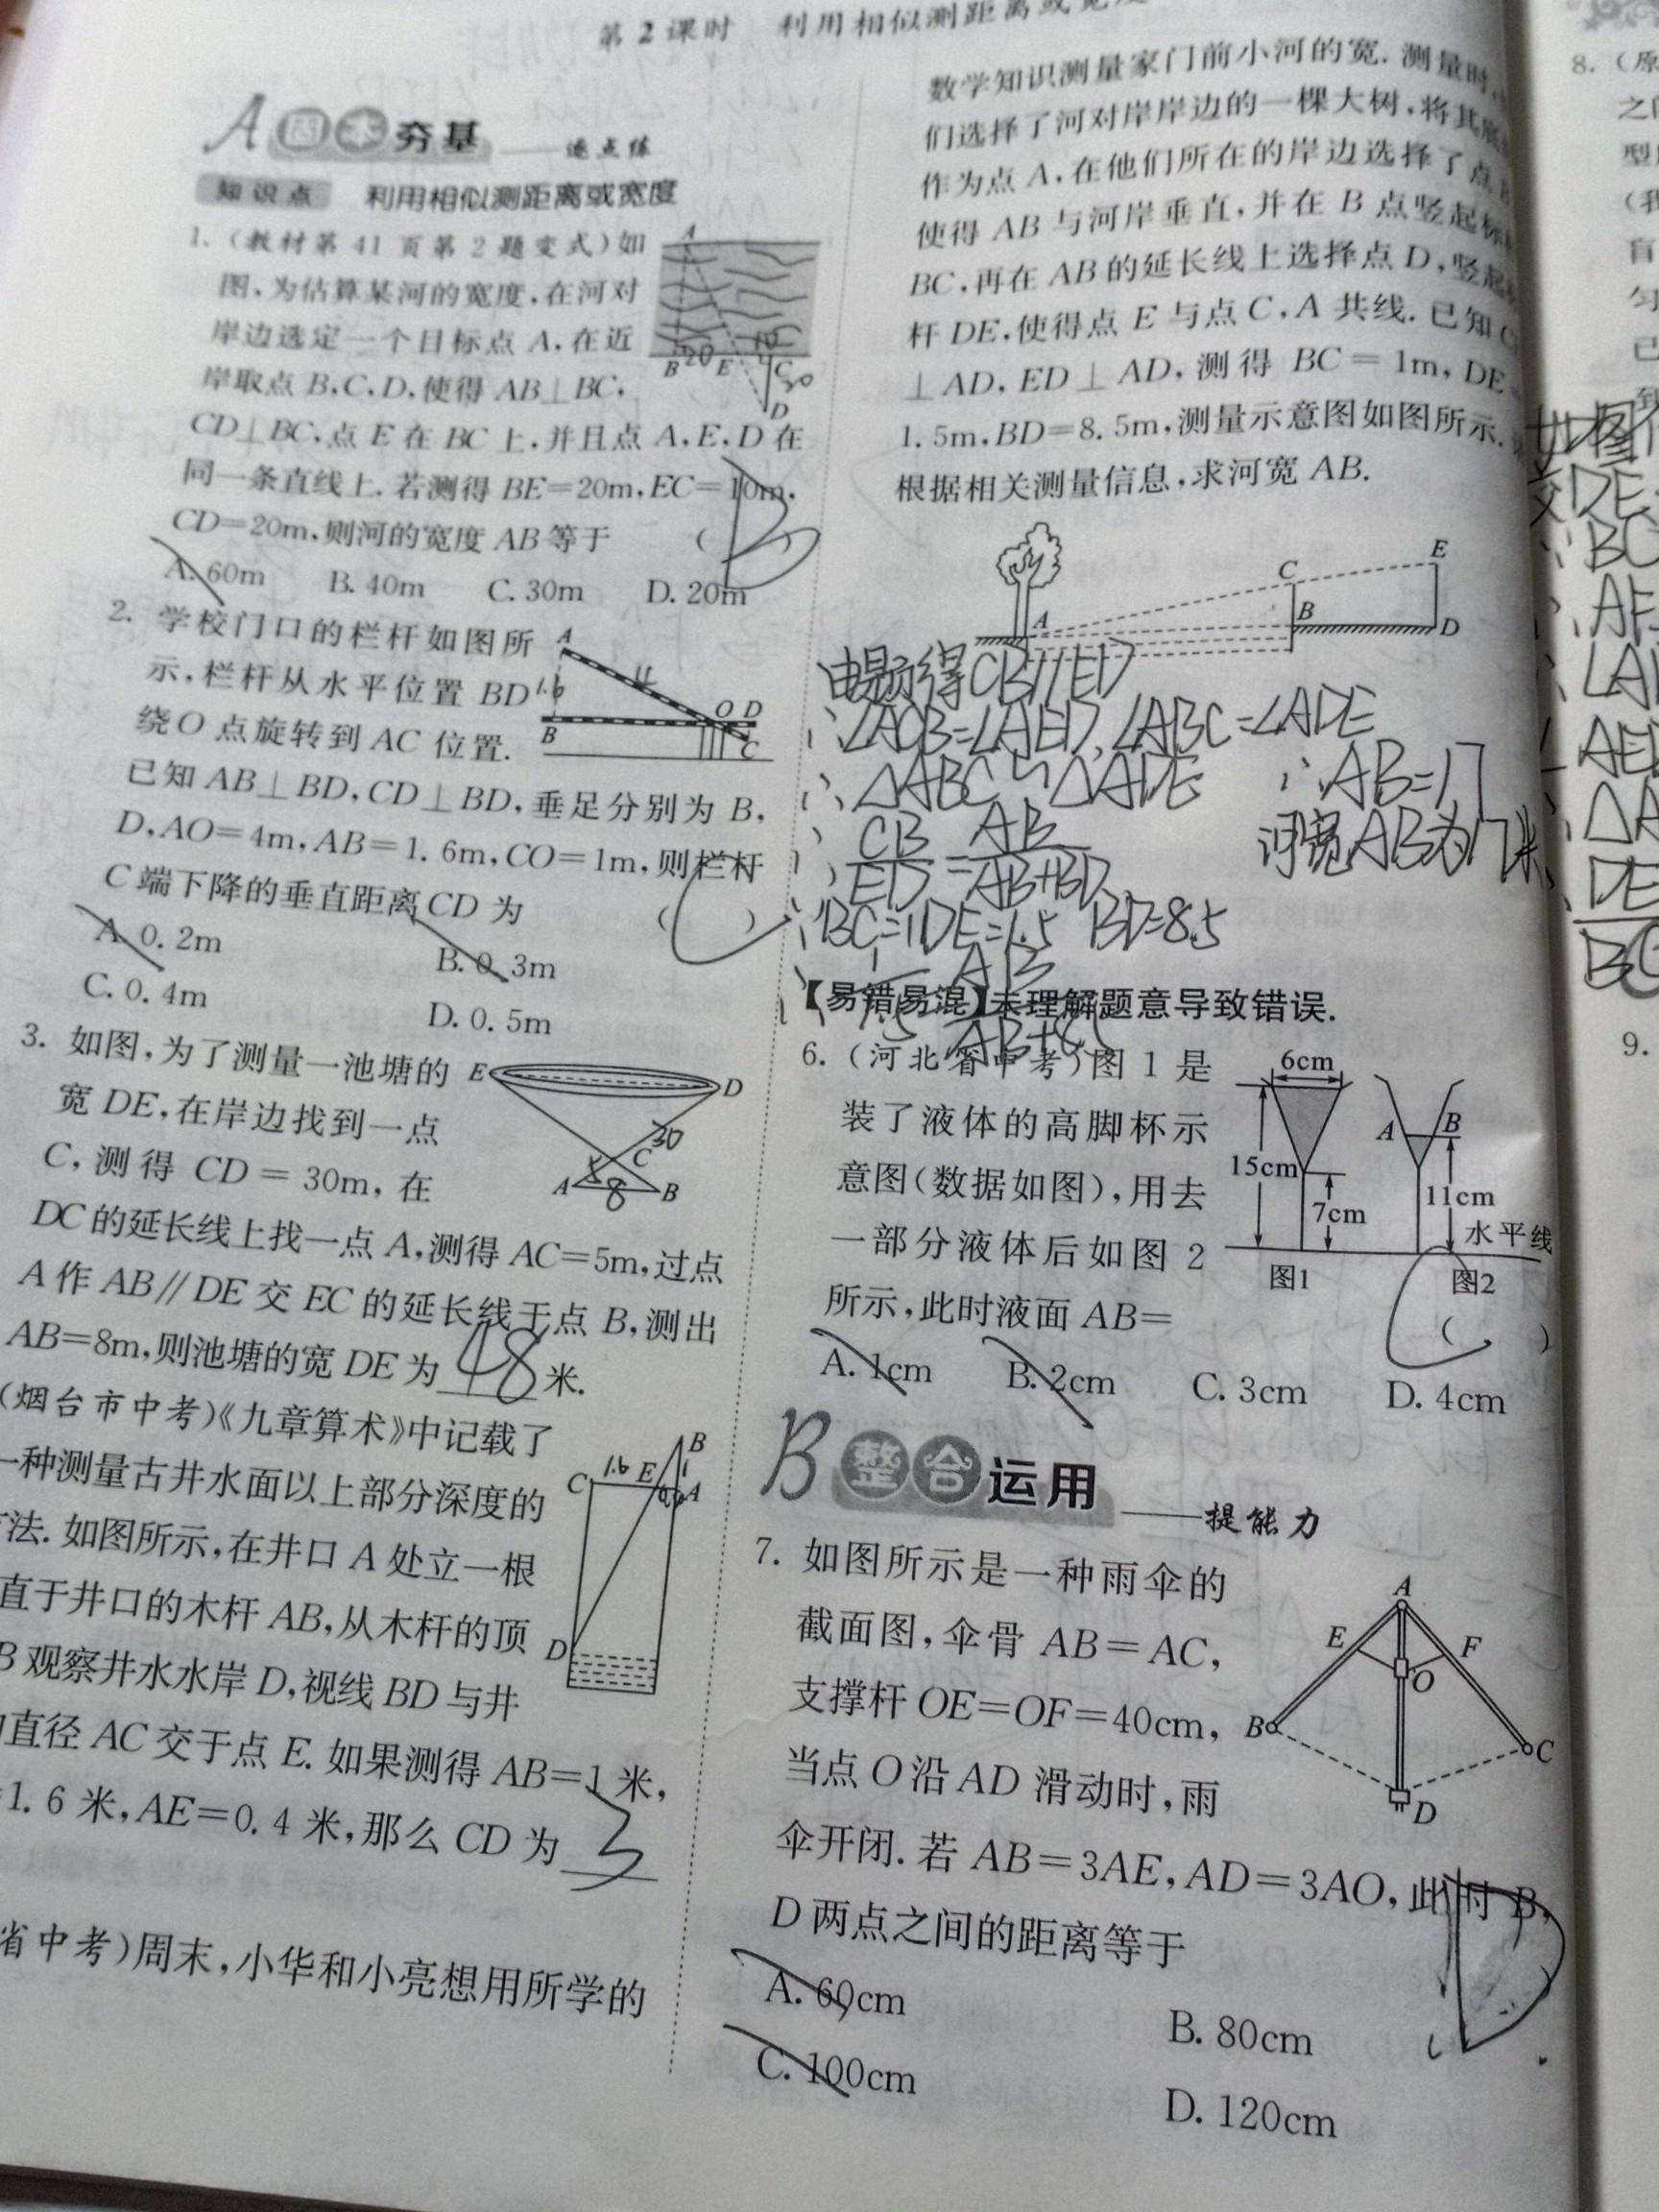 第2课时 利用相似测距离或宽度
A 固本夯基 ——逐点练
知识点 利用相似测距离或宽度
1. (教材第41页第2题变式)如
图,为估算某河的宽度,在河对
岸边选定一个目标点A,在近
岸取点B,C,D,使得AB⊥BC,
CD⊥BC,点E在BC上,并且点A,E,D在
同一条直线上.若测得BE=20m,EC=10m,
CD=20m,则河的宽度AB等于 ( B )
A. 60m B. 40m C. 30m D. 20m
A
B 20 E 10 C
D
2. 学校门口的栏杆如图所
示,栏杆从水平位置BD
绕O点旋转到AC位置.
已知AB⊥BD,CD⊥BD,垂足分别为B,
D,AO=4m,AB=1.6m,CO=1m,则栏杆
C端下降的垂直距离CD为 ( C )
A. 0.2m B. 0.3m
C. 0.4m D. 0.5m
A
1.6 4
B O D
C
3. 如图,为了测量一池塘的
宽DE,在岸边找到一点
C,测得CD=30m,在
DC的延长线上找一点A,测得AC=5m,过点
A作AB∥DE交EC的延长线于点B,测出
AB=8m,则池塘的宽DE为 48 米.
E D
30
5 C
A 8 B
(烟台市中考)《九章算术》中记载了
一种测量古井水面以上部分深度的
法.如图所示,在井口A处立一根
直于井口的木杆AB,从木杆的顶
B观察井水水岸D,视线BD与井
直径AC交于点E.如果测得AB=1米,
1.6米,AE=0.4米,那么CD为 3
B
C 1.6 E 1
A
D
省中考)周末,小华和小亮想用所学的
数学知识测量家门前小河的宽.测量时,
们选择了河对岸岸边的一棵大树,将其底
作为点A,在他们所在的岸边选择了点
使得AB与河岸垂直,并在B点竖起标
BC,再在AB的延长线上选择点D,竖起
杆DE,使得点E与点C,A共线.已知
⊥AD,ED⊥AD,测得BC=1m,DE
1.5m,BD=8.5m,测量示意图如图所示.
根据相关测量信息,求河宽AB.
E
C
A B D
由题可得CB∥ED
∴∠ACB=∠AED,∠ABC=∠ADE
∴△ABC∽△ADE ∴AB=17
∴CB/ED=AB/AB+BD 河宽AB为17米
∵BC=1 DE=1.5 BD=8.5
∴1/1.5=AB/AB+8.5
【易错易混】未理解题意导致错误.
6. (河北省中考)图1是
装了液体的高脚杯示
意图(数据如图),用去
一部分液体后如图2
所示,此时液面AB= ( C )
A. 1cm B. 2cm C. 3cm D. 4cm
6cm
A B
15cm
7cm 11cm
水平线
图1 图2
B 整合运用 ——提能力
7. 如图所示是一种雨伞的
截面图,伞骨AB=AC,
支撑杆OE=OF=40cm,
当点O沿AD滑动时,雨
伞开闭.若AB=3AE,AD=3AO,此时B,
D两点之间的距离等于 ( D )
A. 60cm B. 80cm
C. 100cm D. 120cm
A
E F
O
B C
D
8. (原
之间
型
(我
盲
匀
已
到
如图
交DE
∵BC
∴AE
∴∠A
AED
∴△A
DE
BC
9.